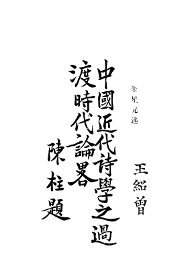 朱星元
王紹曾
中國近代詩學之過
渡時代論畧
陳柱題